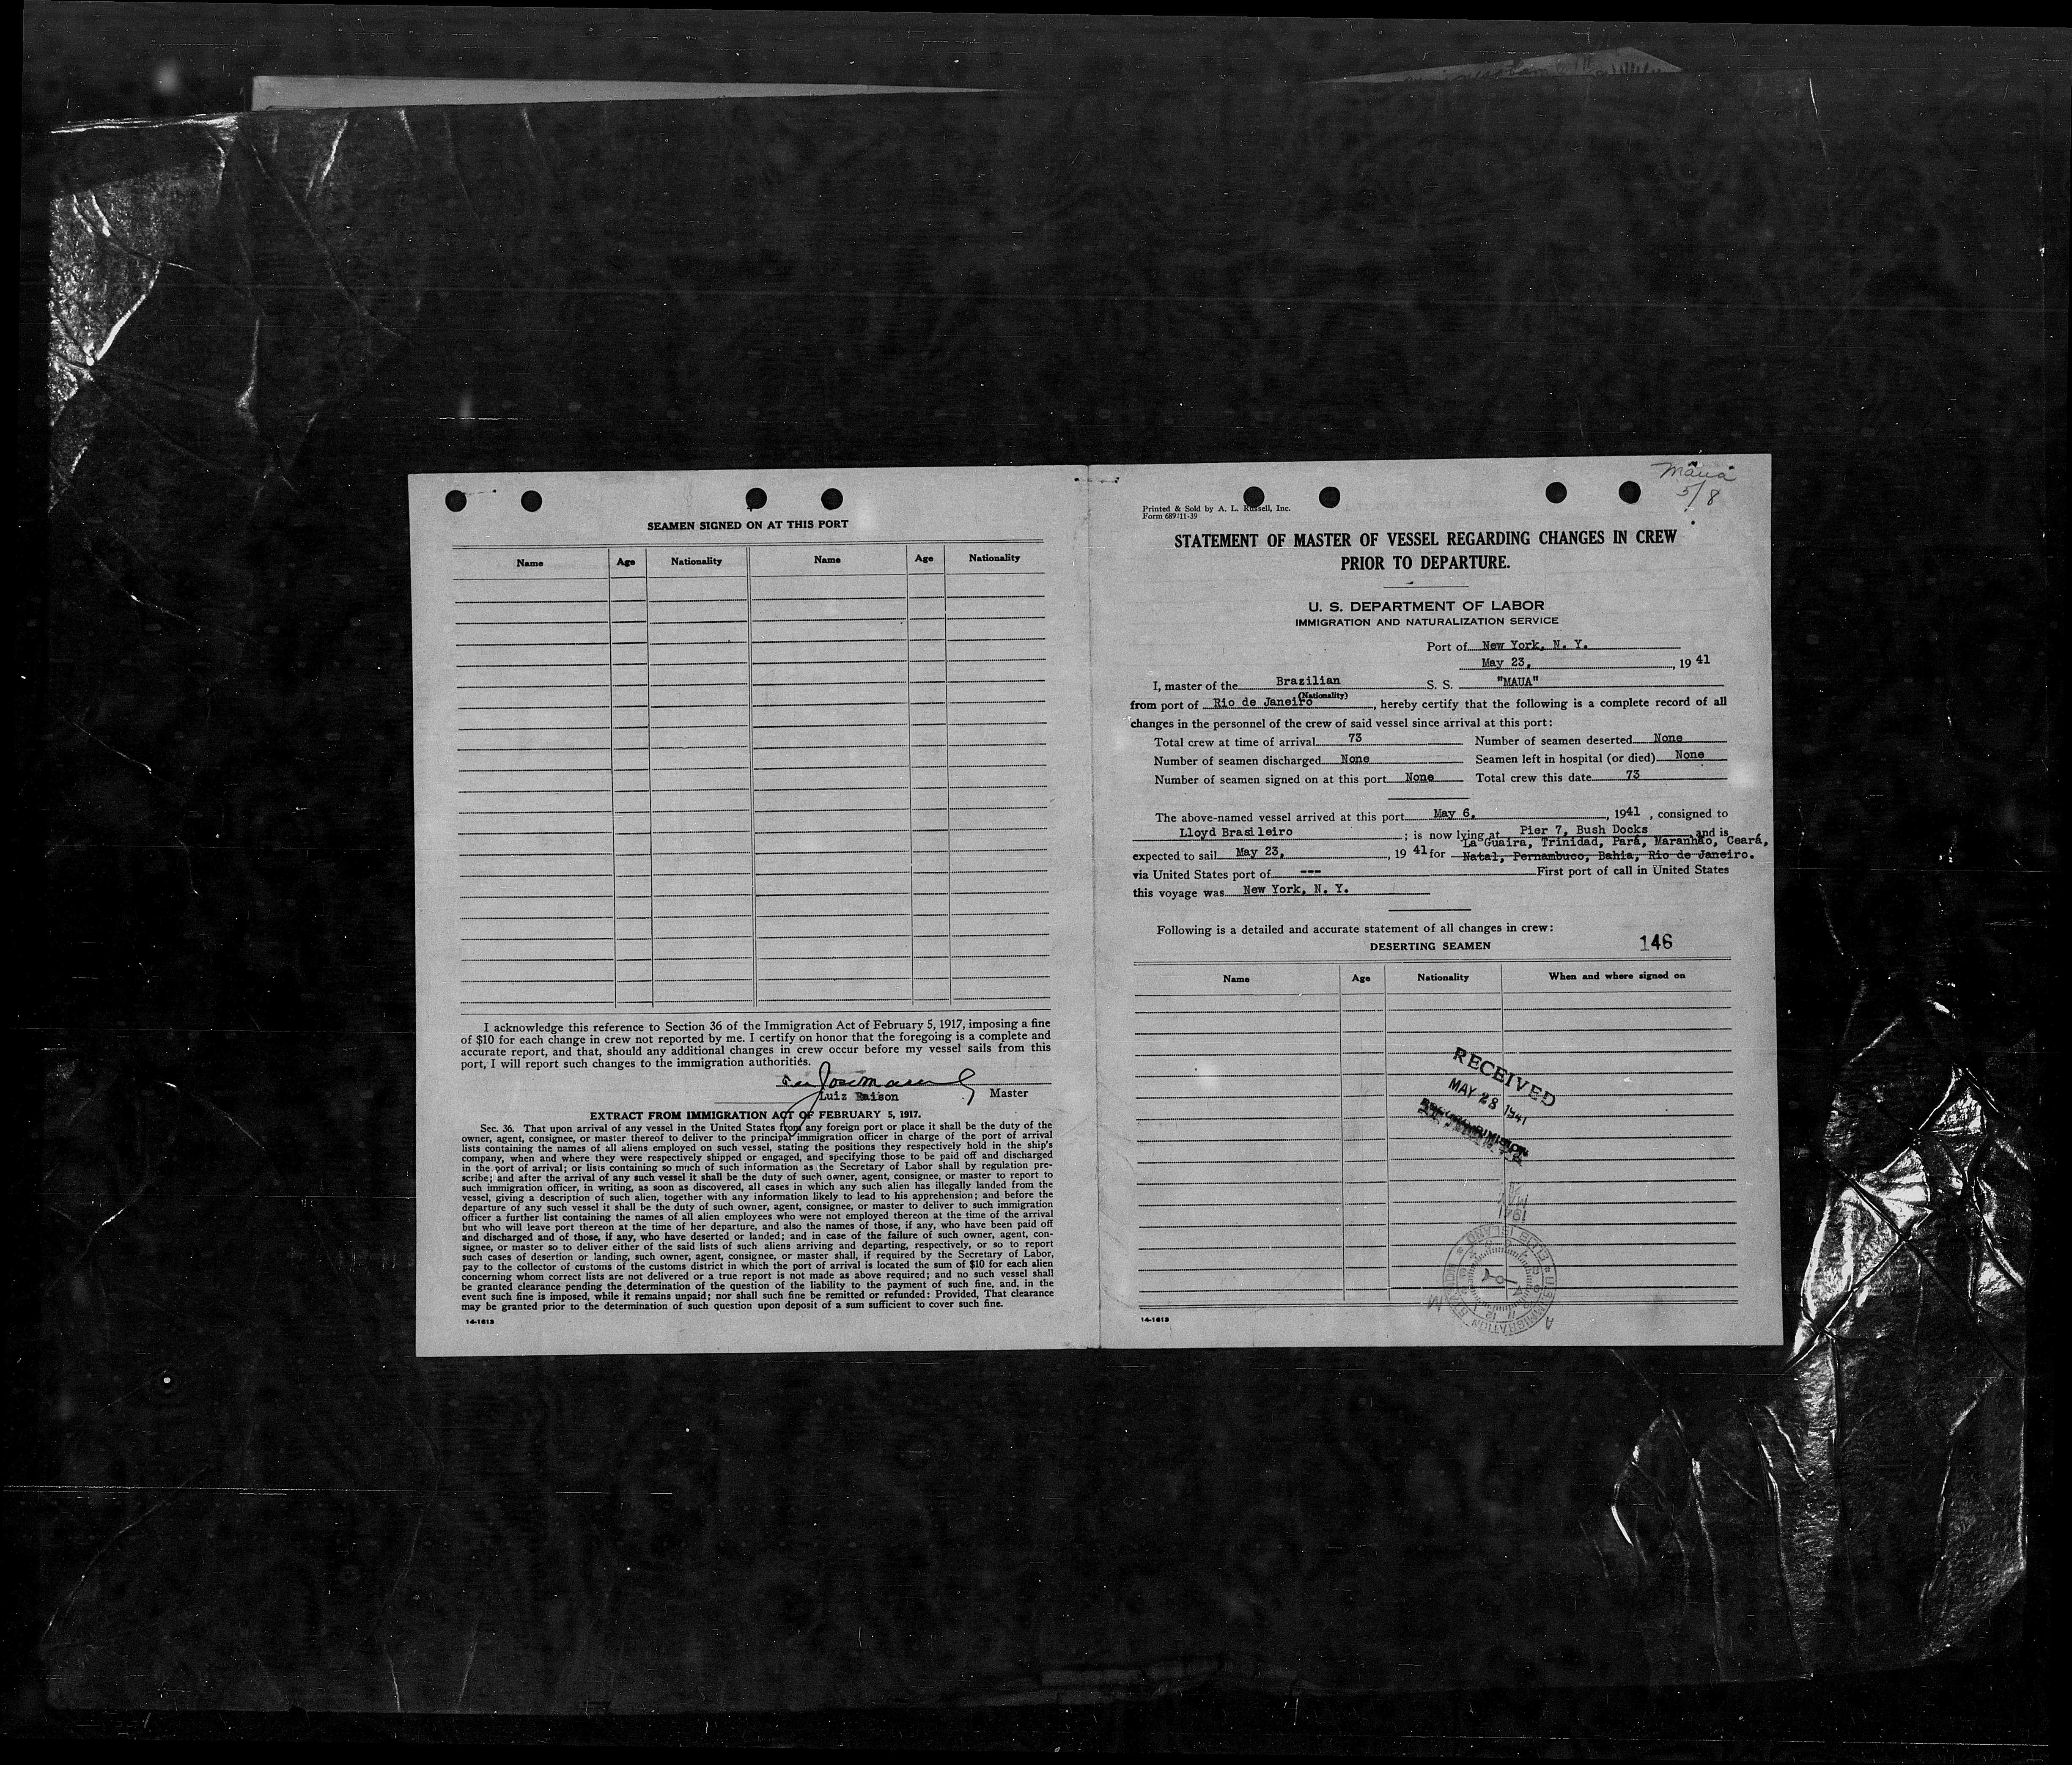 SEAMEN SIGNED ON AT THIS PORT
Name Age Nationality Name Age Nationality
I acknowledge this reference to Section 36 of the Immigration Act of February 5, 1917, imposing a fine
of $10 for each change in crew not reported by me. I certify on honor that the foregoing is a complete and
accurate report, and that, should any additional changes in crew occur before my vessel sails from this
port, I will report such changes to the immigration authorities.
Luiz Raison Master
EXTRACT FROM IMMIGRATION ACT OF FEBRUARY 5, 1917.
Sec. 36. That upon arrival of any vessel in the United States from any foreign port or place it shall be the duty of the
owner, agent, consignee, or master thereof to deliver to the principal immigration officer in charge of the port of arrival
lists containing the names of all aliens employed on such vessel, stating the positions they respectively hold in the ship's
company, when and where they were respectively shipped or engaged, and specifying those to be paid off and discharged
in the port of arrival; or lists containing so much of such information as the Secretary of Labor shall by regulation pre-
scribe; and after the arrival of any such vessel it shall be the duty of such owner, agent, consignee, or master to report to
such immigration officer, in writing, as soon as discovered, all cases in which any such alien has illegally landed from the
vessel, giving a description of such alien, together with any information likely to lead to his apprehension; and before the
departure of any such vessel it shall be the duty of such owner, agent, consignee, or master to deliver to such immigration
officer a further list containing the names of all alien employees who were not employed thereon at the time of the arrival
but who will leave port thereon at the time of her departure, and also the names of those, if any, who have been paid off
and discharged and of those, if any, who have deserted or landed; and in case of the failure of such owner, agent, con-
signee, or master so to deliver either of the said lists of such aliens arriving and departing, respectively, or so to report
such cases of desertion or landing, such owner, agent, consignee, or master shall, if required by the Secretary of Labor,
pay to the collector of customs of the customs district in which the port of arrival is located the sum of $10 for each alien
concerning whom correct lists are not delivered or a true report is not made as above required; and no such vessel shall
be granted clearance pending the determination of the question of the liability to the payment of such fine, and, in the
event such fine is imposed, while it remains unpaid; nor shall such fine be remitted or refunded: Provided, That clearance
may be granted prior to the determination of such question upon deposit of a sum sufficient to cover such fine.
14-1613
Mauá
5/8
Printed & Sold by A. L. Russell, Inc.
Form 689:11-39
STATEMENT OF MASTER OF VESSEL REGARDING CHANGES IN CREW
PRIOR TO DEPARTURE.
U. S. DEPARTMENT OF LABOR
IMMIGRATION AND NATURALIZATION SERVICE
Port of New York, N. Y.
May 23, , 19 41
I, master of the Brazilian S. S. "MAUA"
(Nationality)
from port of Rio de Janeiro , hereby certify that the following is a complete record of all
changes in the personnel of the crew of said vessel since arrival at this port:
Total crew at time of arrival 73 Number of seamen deserted None
Number of seamen discharged None Seamen left in hospital (or died) None
Number of seamen signed on at this port None Total crew this date 73
The above-named vessel arrived at this port May 6, , 1941 , consigned to
Lloyd Brasileiro ; is now lying at Pier 7, Bush Docks and is
La Guaira, Trinidad, Pará, Maranhão, Ceará,
expected to sail May 23, , 19 41 for Natal, Pernambuco, Bahia, Rio de Janeiro.
via United States port of --- First port of call in United States
this voyage was New York, N. Y.
Following is a detailed and accurate statement of all changes in crew:
DESERTING SEAMEN 146
Name Age Nationality When and where signed on
RECEIVED
MAY 28 1941
14-1613